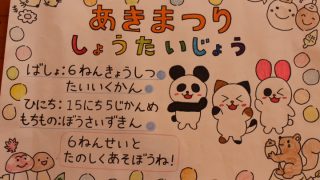 あきまつり
しょうたいじょう
ばしょ:6ねんきょうしつ
たいいくかん
ひにち:15にち5じかんめ
もちもの:ぼうさいずきん
6ねんせいと
たのしくあそぼうね!